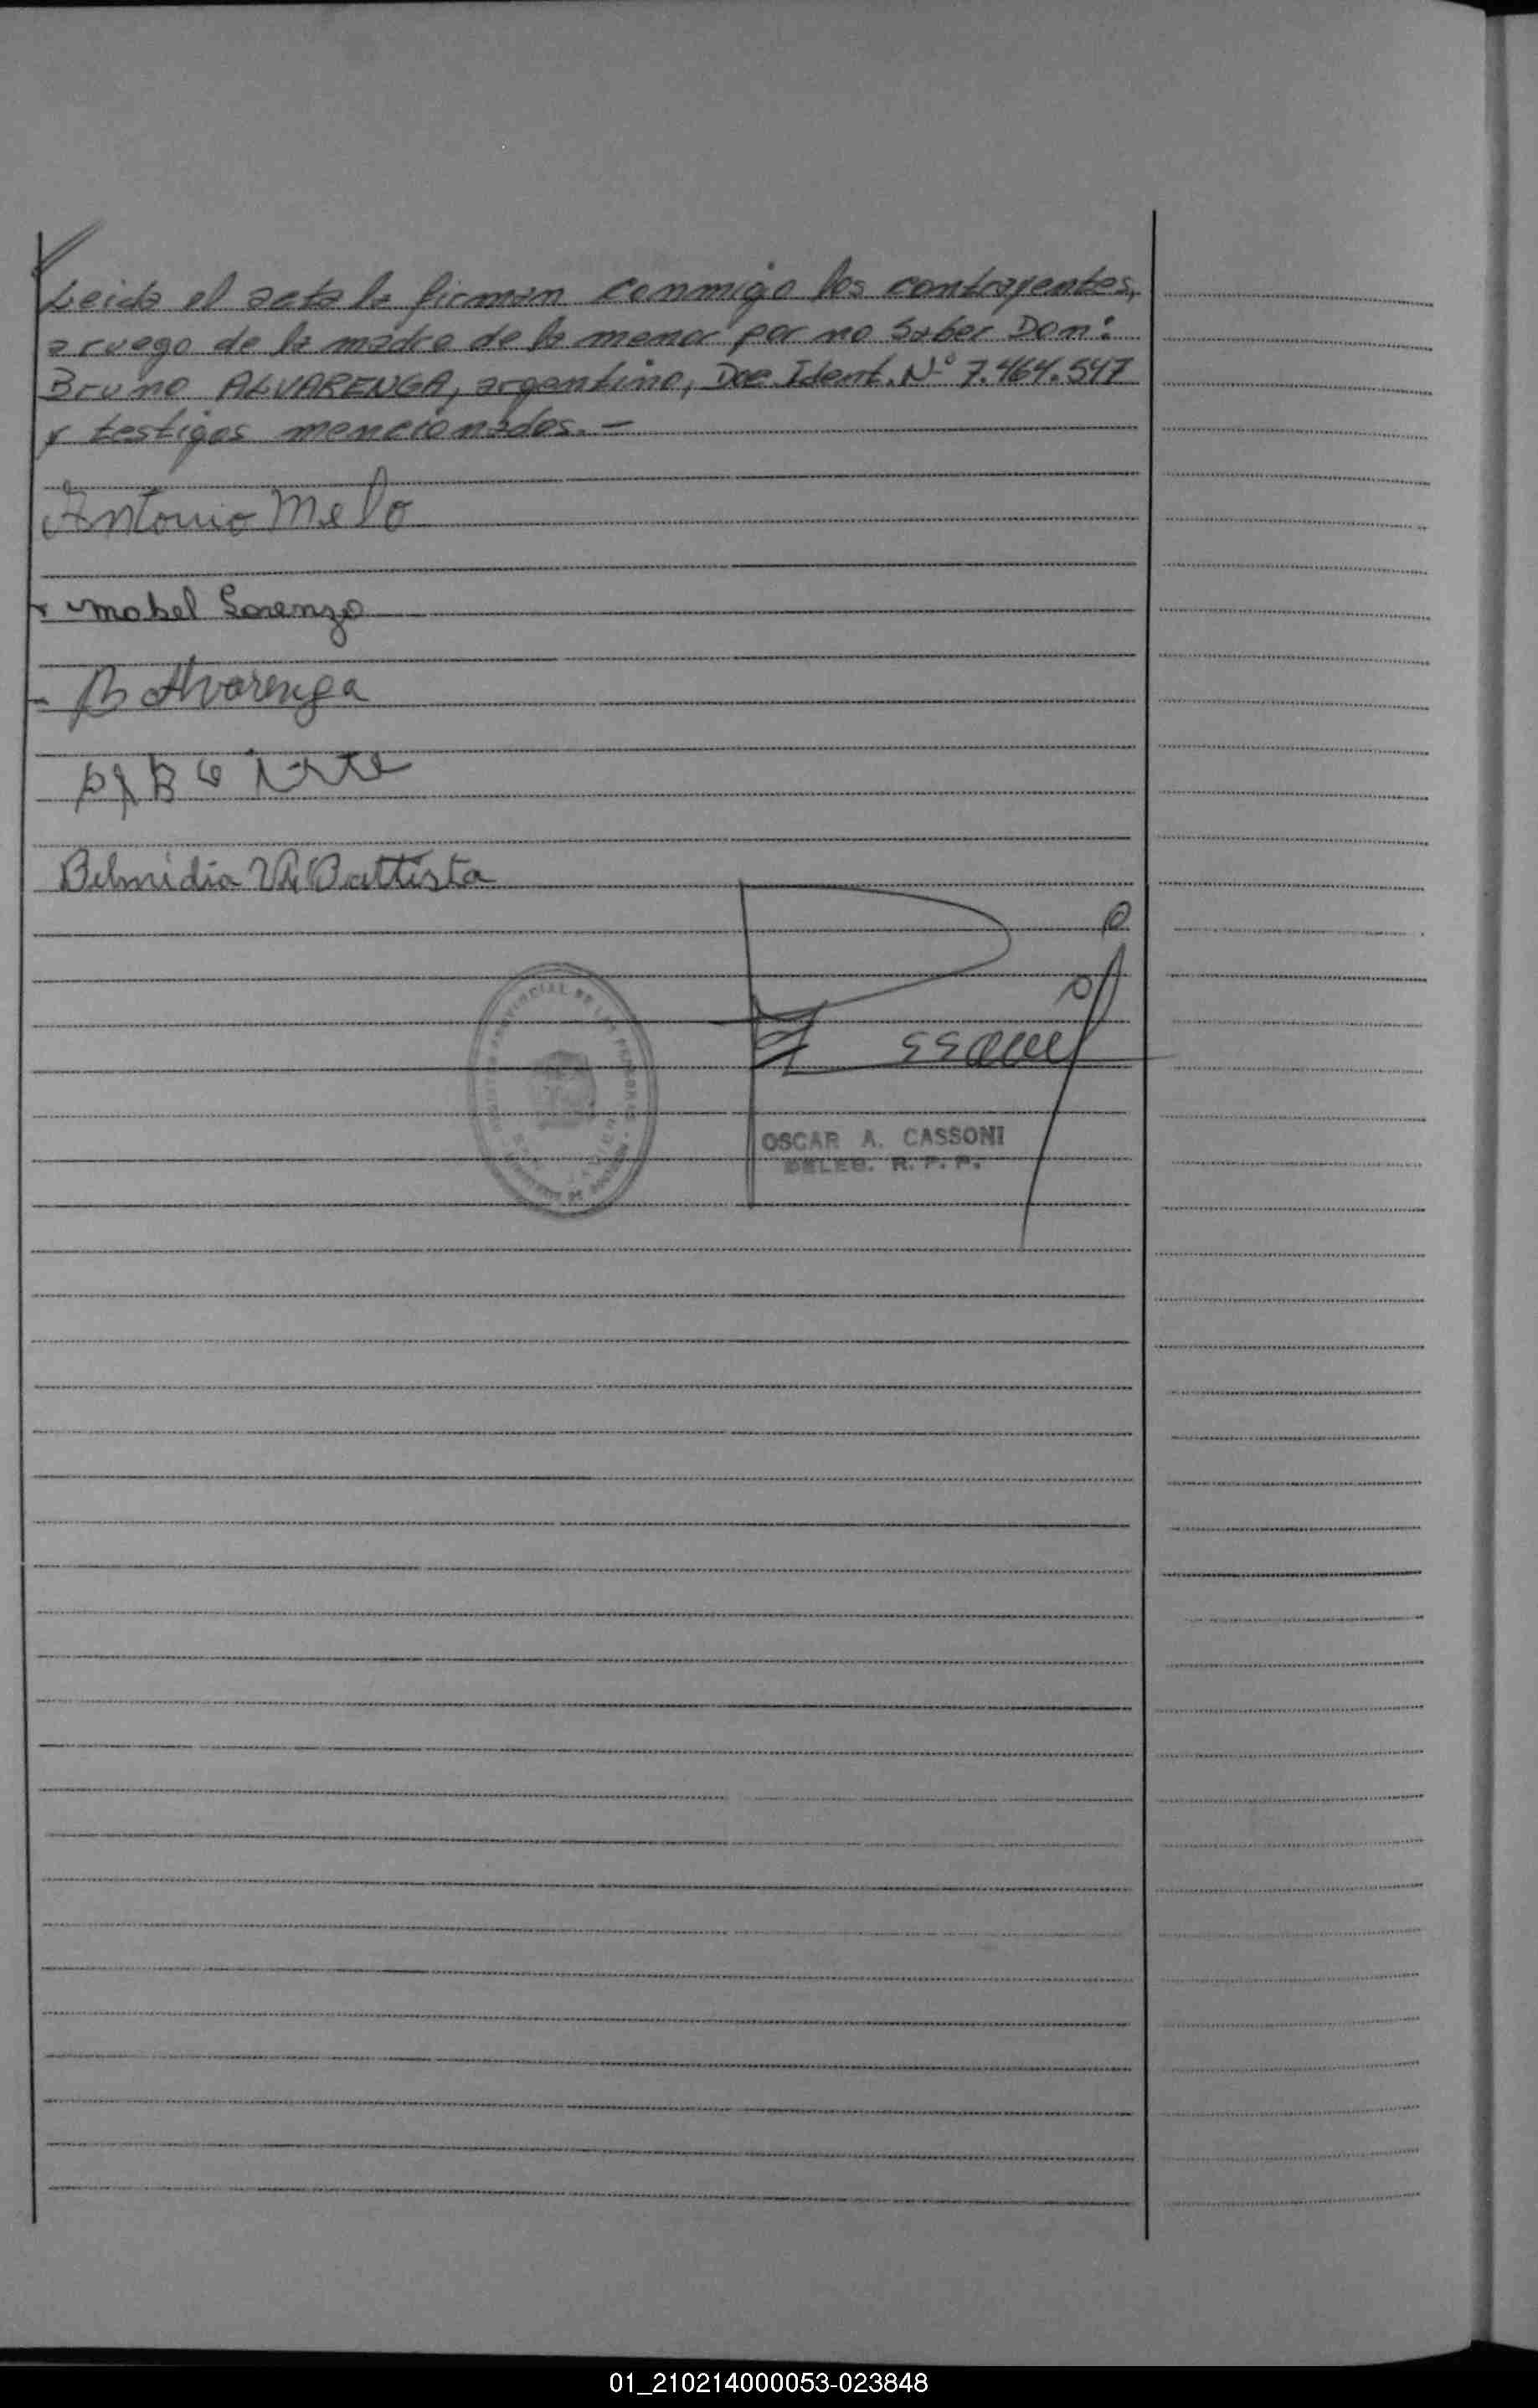 Leida el acta la firman conmigo los contrayentes,
a ruego de la madre de la menor por no saber Don:
Bruno ALVARENGA, argentino, Doc Ident. Nº 7.464.547
y testigos mencionados.-
Antonio Melo
Mabel Lorenzo
B Alvarenga
Belmidia Battista
OSCAR A. CASSONI
DELEG. R. P. P.
01_210214000053-023848